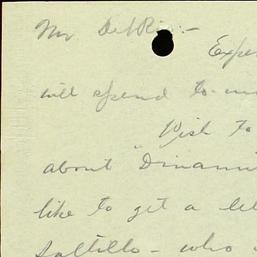 Mr Del Rio -
Expe
will spend to-
Wish to
about "Dinami
like to get a let
Saltillo - who